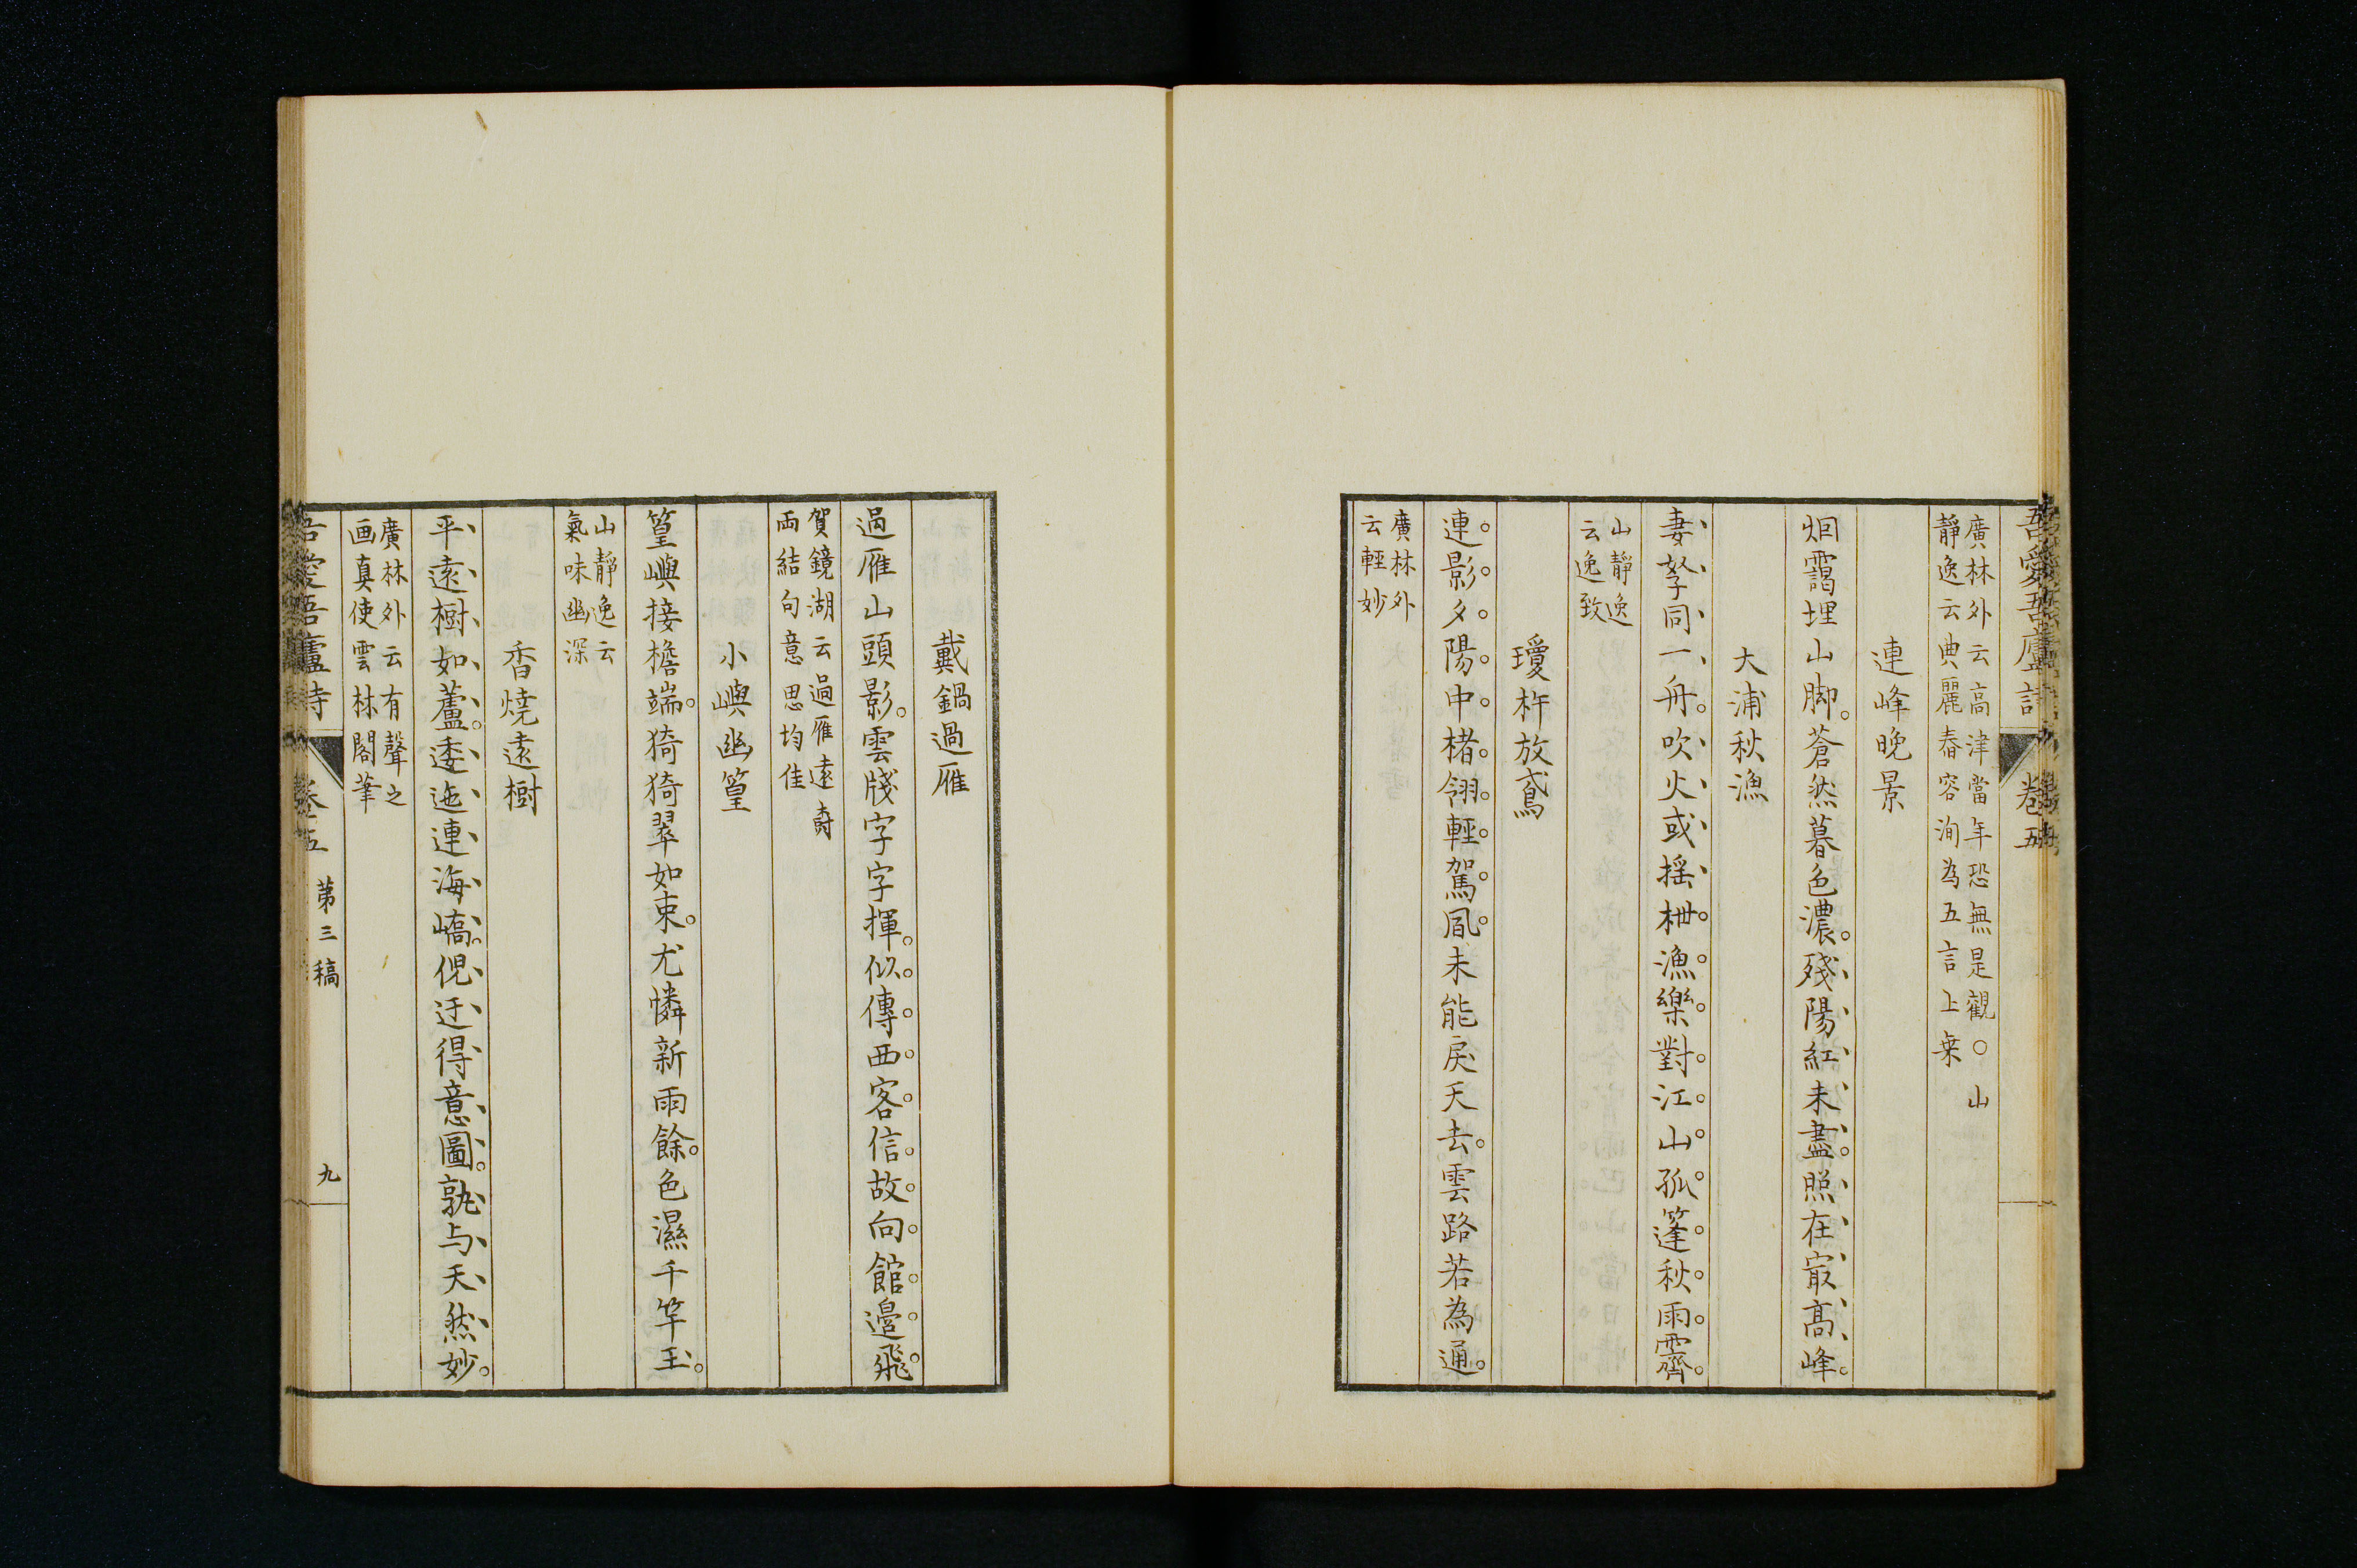 吾愛吾廬詩
卷五
廣林外云高津當年恐無是觀○山
靜逸云典麗舂容洵為五言上乗
連峰晚景
烟靄埋山脚。蒼然暮色濃。殘陽紅未盡。照在㝡高峰。
大浦秋漁
妻孥同一舟。吹火或搖枻。漁樂對江山。孤篷秋雨霽。
山靜逸
云逸致
瓊杵放鳶
連影夕陽中。楮翎輕駕風。未能戾天去。雲路若為通。
廣林外
云輕妙
戴鍋過雁
過雁山頭影。雲牋字字揮。似傳西客信。故向館邊飛。
賀鏡湖云過雁遠樹
両結句意思均佳
小嶼幽篁
篁嶼接檐端。猗猗翠如束。尤憐新雨餘。色濕千竿玉。
山靜逸云
氣味幽深
香燒遠樹
平遠樹如薺。逶迤連海嶠。倪迂得意圖。孰与天然妙。
廣林外云有聲之
画真使雲林閣筆
吾愛吾廬詩
卷五
第三稿
九